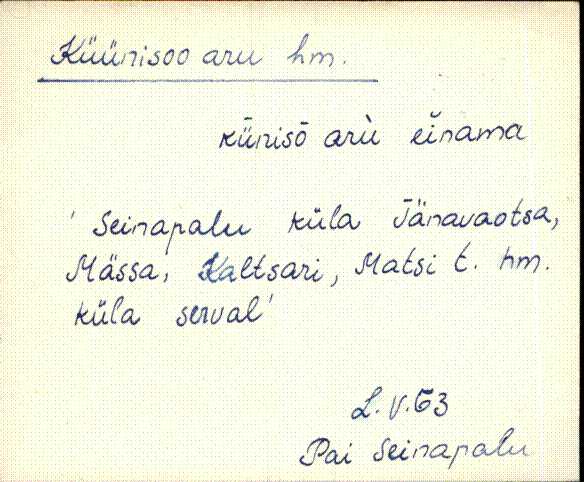 Küünisoo aru hm.
kǖnisō arù eīnama
'Seinapalu küla Tänavaotsa,
Mässa, Kaltsari, Matsi t. hm.
küla serval'
L.V.63
Pai Seinapalu